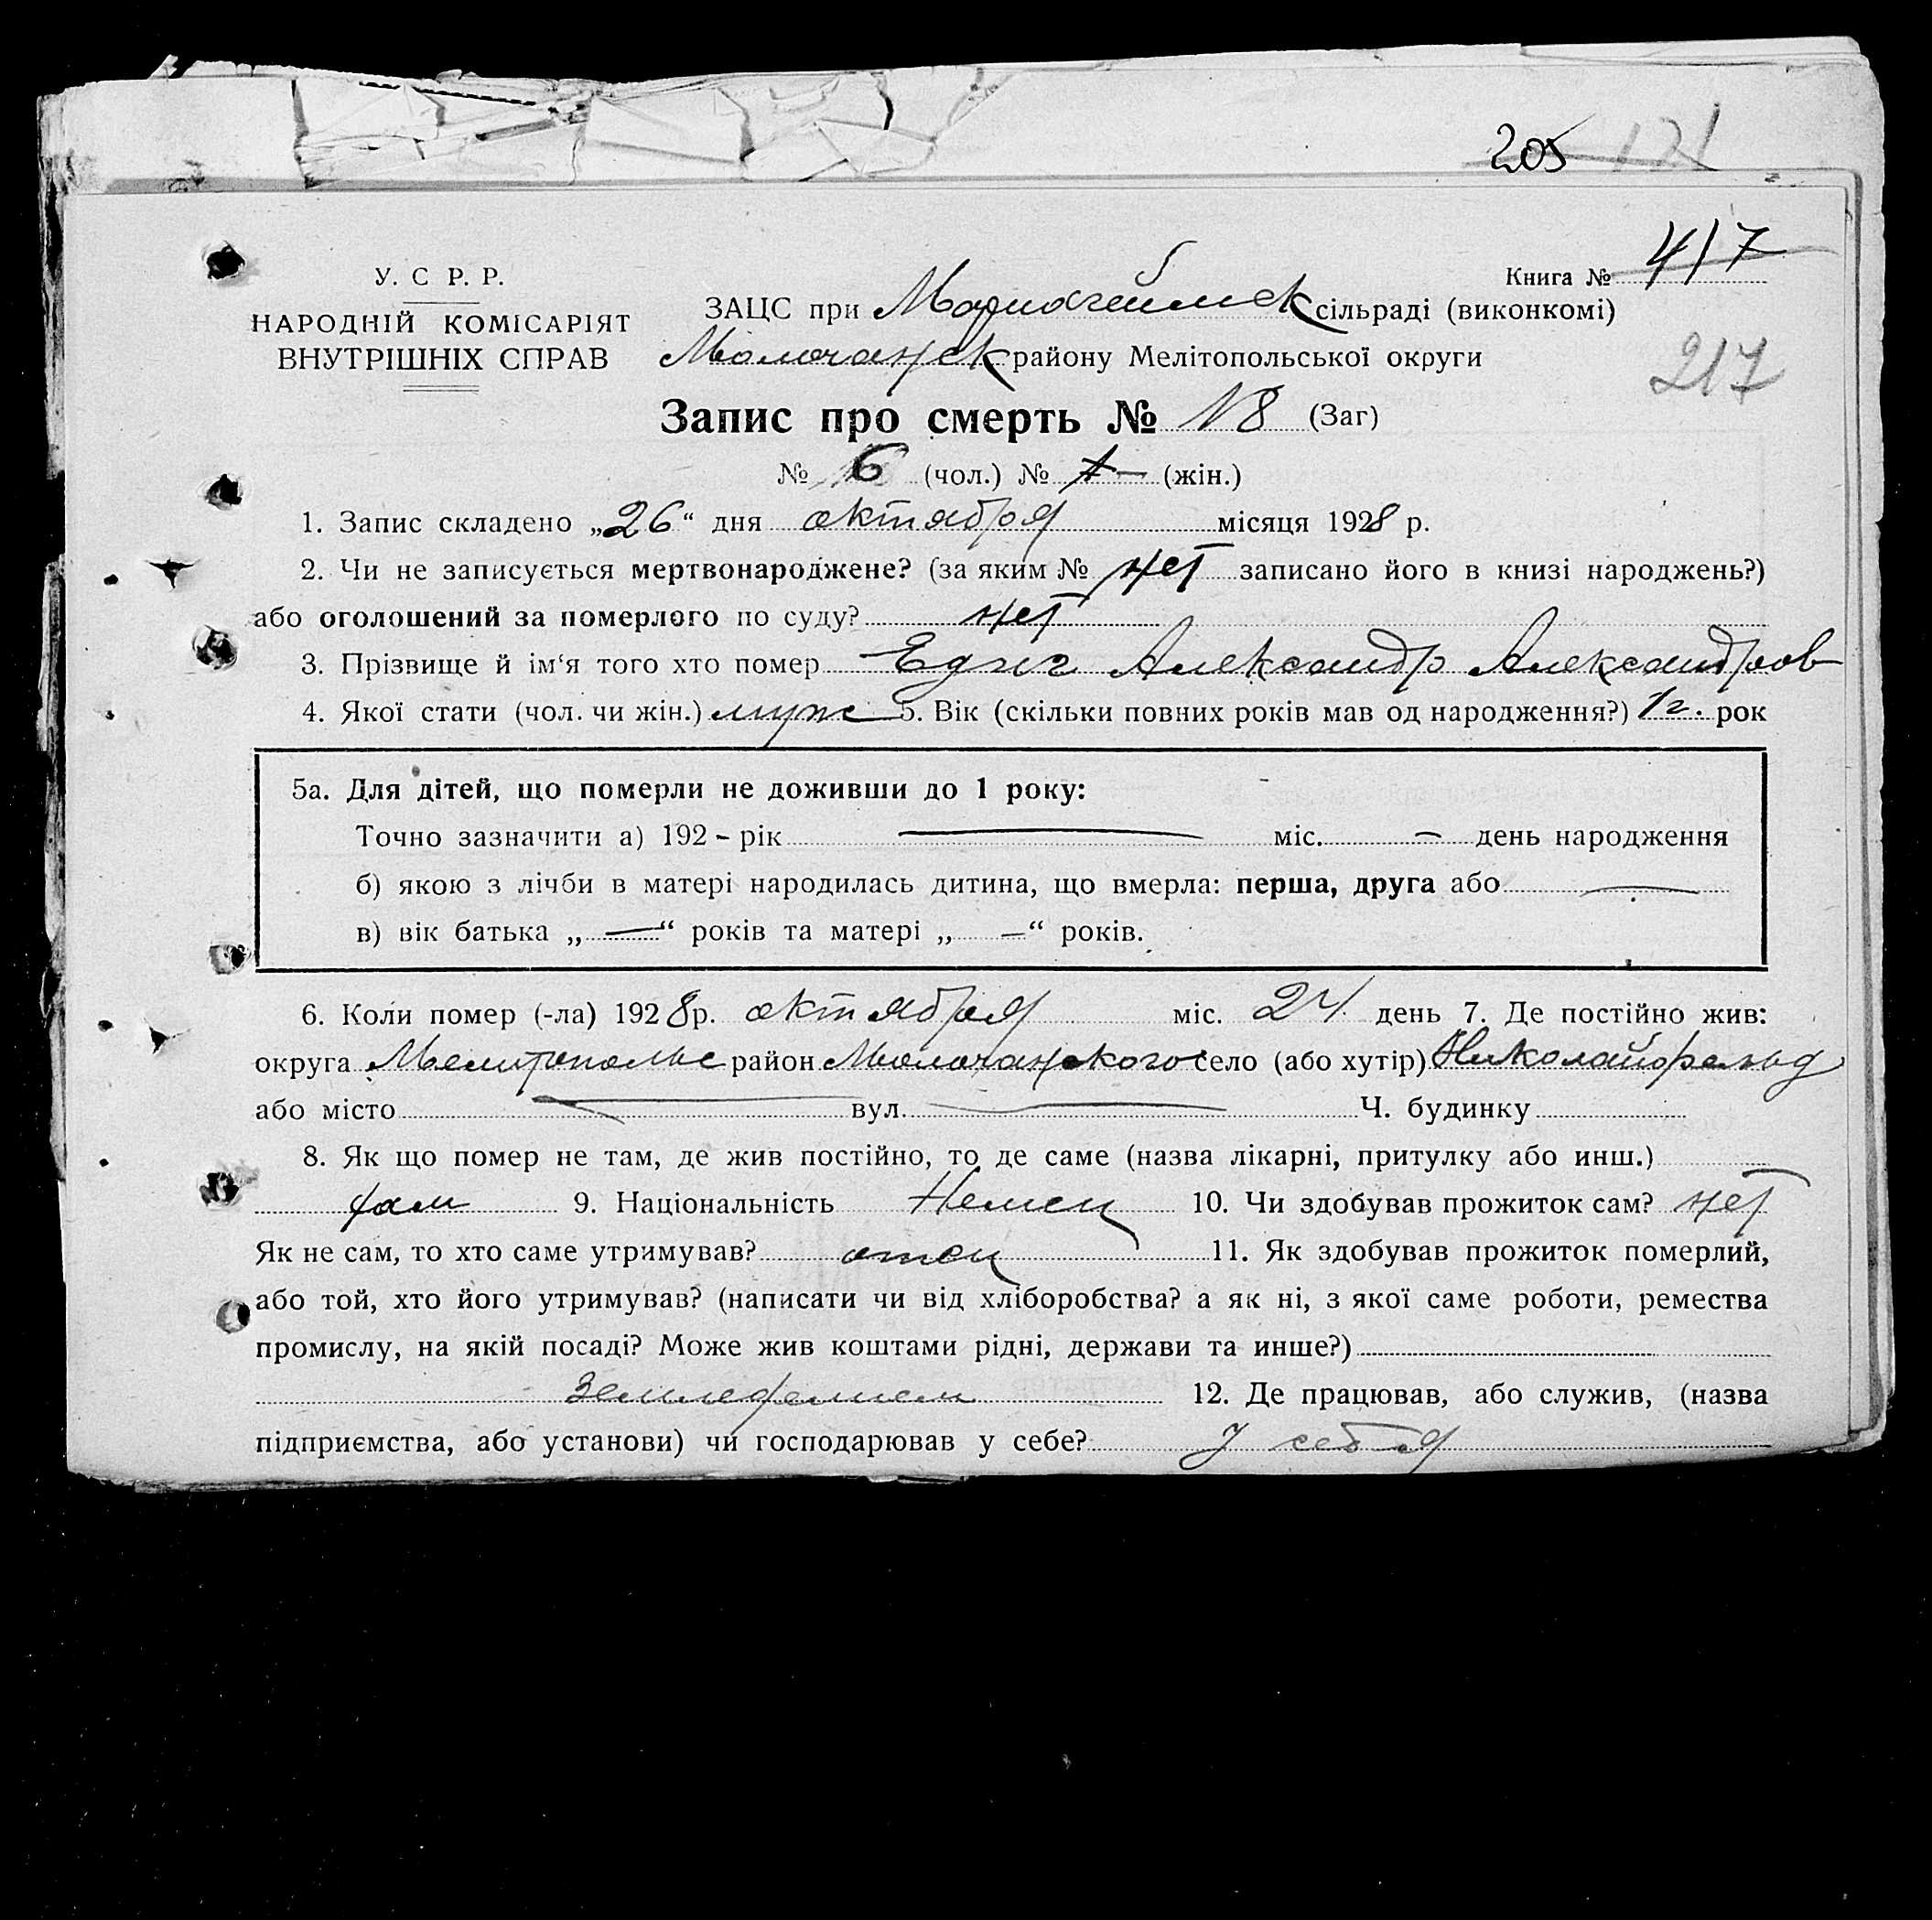 205 121
Книга № 417
У. С. Р. Р.
НАРОДНІЙ КОМІСАРІЯТ
ВНУТРІШНІХ СПРАВ
ЗАЦС при Мариагеймск сільраді (виконкомі)
Молочанск району Мелітопольської округи
217
Запис про смерть № 18 (Заг)
№ 6 (чол.) № (жін.)
1. Запис складено „26“ дня октября місяця 1928 р.
2. Чи не записується мертвонароджене? (за яким № нет записано його в книзі народжень?)
або оголошений за померлого по суду? нет
3. Прізвище й ім‘я того хто помер Александр Александров
4. Якої стати (чол. чи жін.) муж 5. Вік (скільки повних років мав од народження?) 1 г. рок
5а. Для дітей, що померли не доживши до 1 року:
Точно зазначити а) 192 – рік — міс. — день народження
б) якою з лічби в матері народилась дитина, що вмерла: перша, друга або —
в) вік батька „ — “ років та матері „ — “ років.
6. Коли помер (-ла) 1928 р. октября міс. 24 день 7. Де постійно жив:
округа Мелитопольс район Молочанского село (або хутір) Николайфельд
або місто — вул. — Ч. будинку
8. Як що помер не там, де жив постійно, то де саме (назва лікарні, притулку або инш.)
там 9. Національність Немец 10. Чи здобував прожиток сам? нет
Як не сам, то хто саме утримував? отец 11. Як здобував прожиток померлий,
або той, хто його утримував? (написати чи від хліборобства? а як ні, з якої саме роботи, ремества
промислу, на якій посаді? Може жив коштами рідні, держави та инше?)
Земледелием 12. Де працював, або служив, (назва
підприємства, або установи) чи господарював у себе? У себя